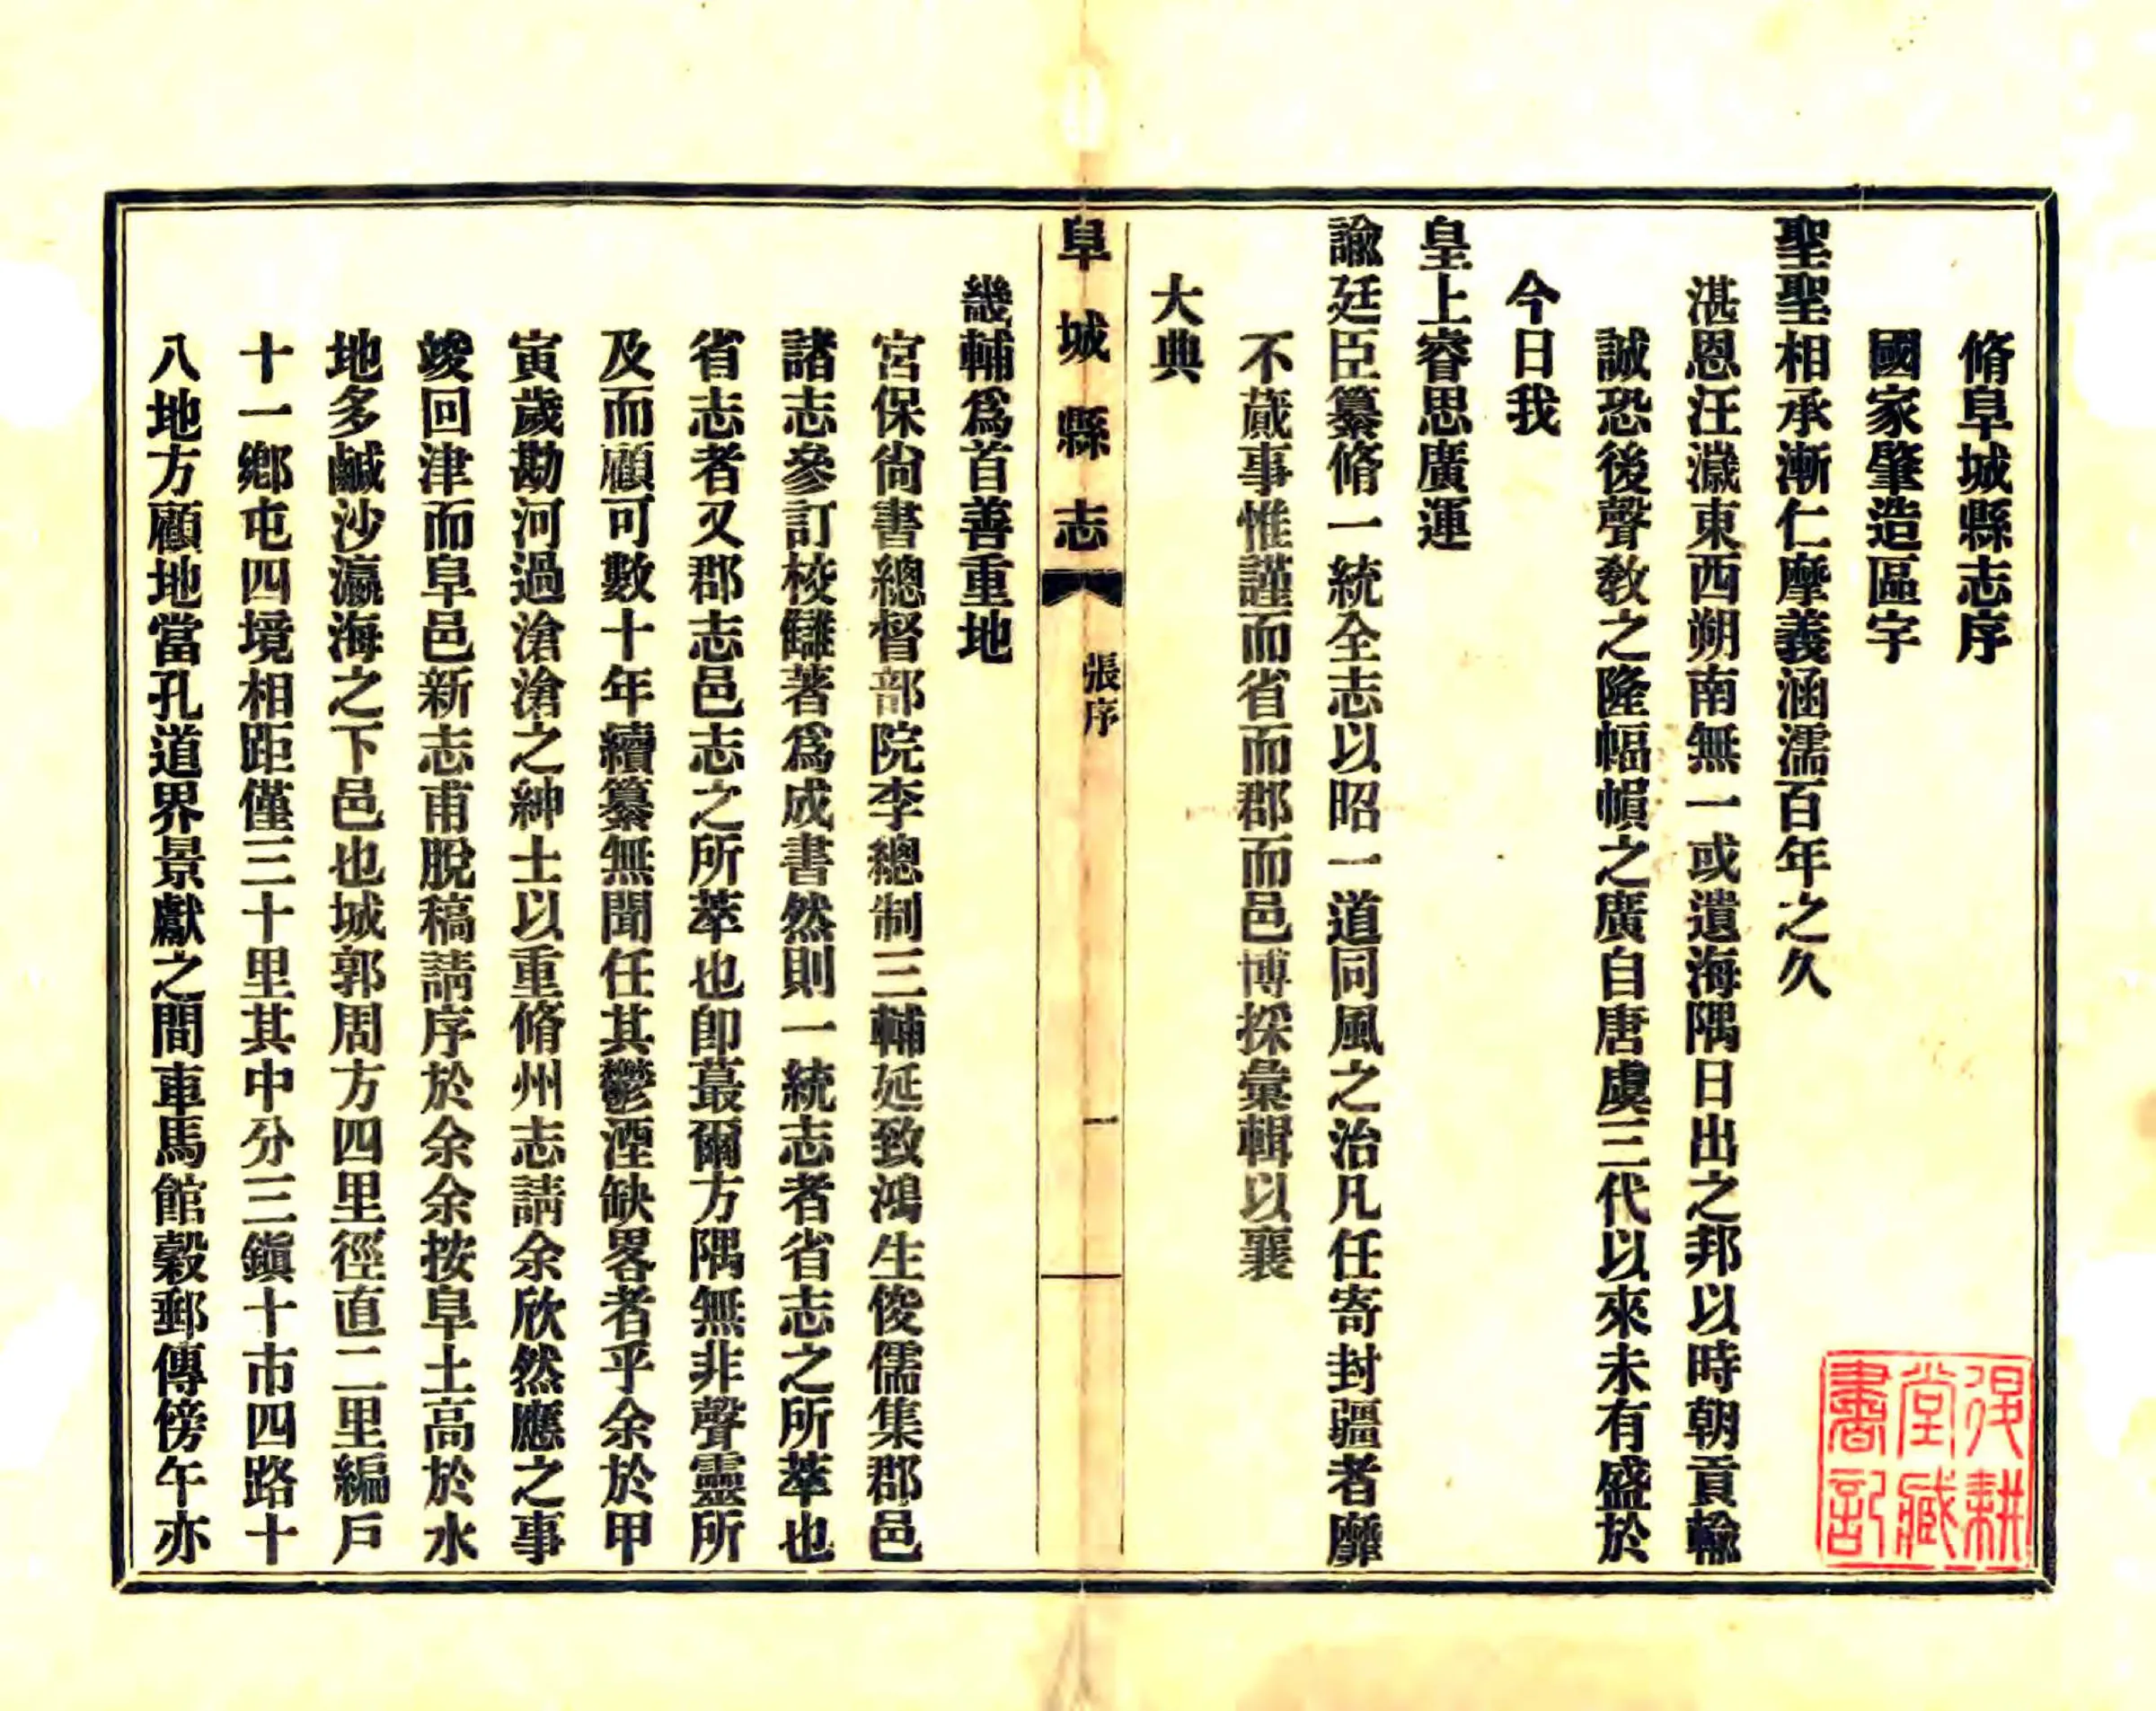 脩阜城縣志序
國家肇造區宇
聖聖相承漸仁摩義涵濡百年之久
湛恩汪濊東西朔南無一或遺海隅日出之邦以時朝貢輸
誠恐後聲敎之隆幅幀之廣自唐虞三代以來未有盛於
今日我
皇上睿思廣運
諭廷臣纂脩一統全志以昭一道同風之治凡任寄封疆者靡
不蕆事惟謹而省而郡而邑博採彙輯以襄
大典
阜城縣志
張序
一
畿輔爲首善重地
宮保尙書總督部院李總制三輔延致鴻生俊儒集郡邑
諸志參訂校讎著爲成書然則一統志者省志之所萃也
省志者又郡志邑志之所萃也卽蕞爾方隅無非聲靈所
及而顧可數十年續纂無聞任其鬱湮缺畧者乎余於甲
寅歲勘河過滄滄之紳士以重脩州志請余欣然應之事
竣回津而阜邑新志甫脫稿請序於余余按阜土高於水
地多鹹沙瀛海之下邑也城郭周方四里徑直二里編戶
十一鄉屯四境相距僅三十里其中分三鎭十市四路十
八地方顧地當孔道界景獻之間車馬館穀郵傳傍午亦
得耕堂藏書記